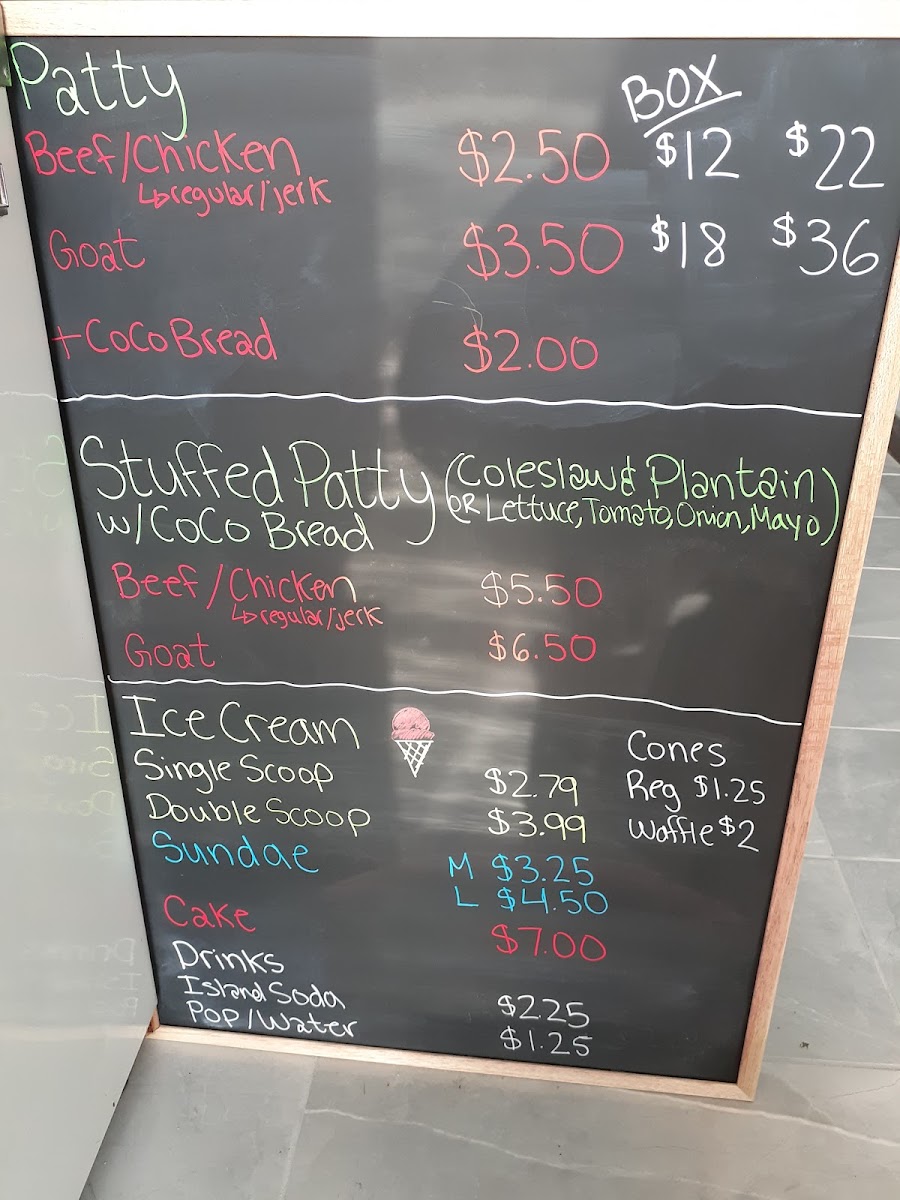 Patty BOX
Beef/Chicken $2.50 $12 $22
↳regular/jerk
Goat $3.50 $18 $36
+CoCo Bread $2.00
Stuffed Patty (Coleslaw & Plantain)
w/CoCo Bread (OR Lettuce, Tomato, Onion, Mayo)
Beef/Chicken $5.50
↳regular/jerk
Goat $6.50
Ice Cream Cones
Single Scoop $2.79 Reg $1.25
Double Scoop $3.99 Waffle $2
Sundae M $3.25
L $4.50
Cake $7.00
Drinks
Island Soda $2.25
Pop/Water $1.25